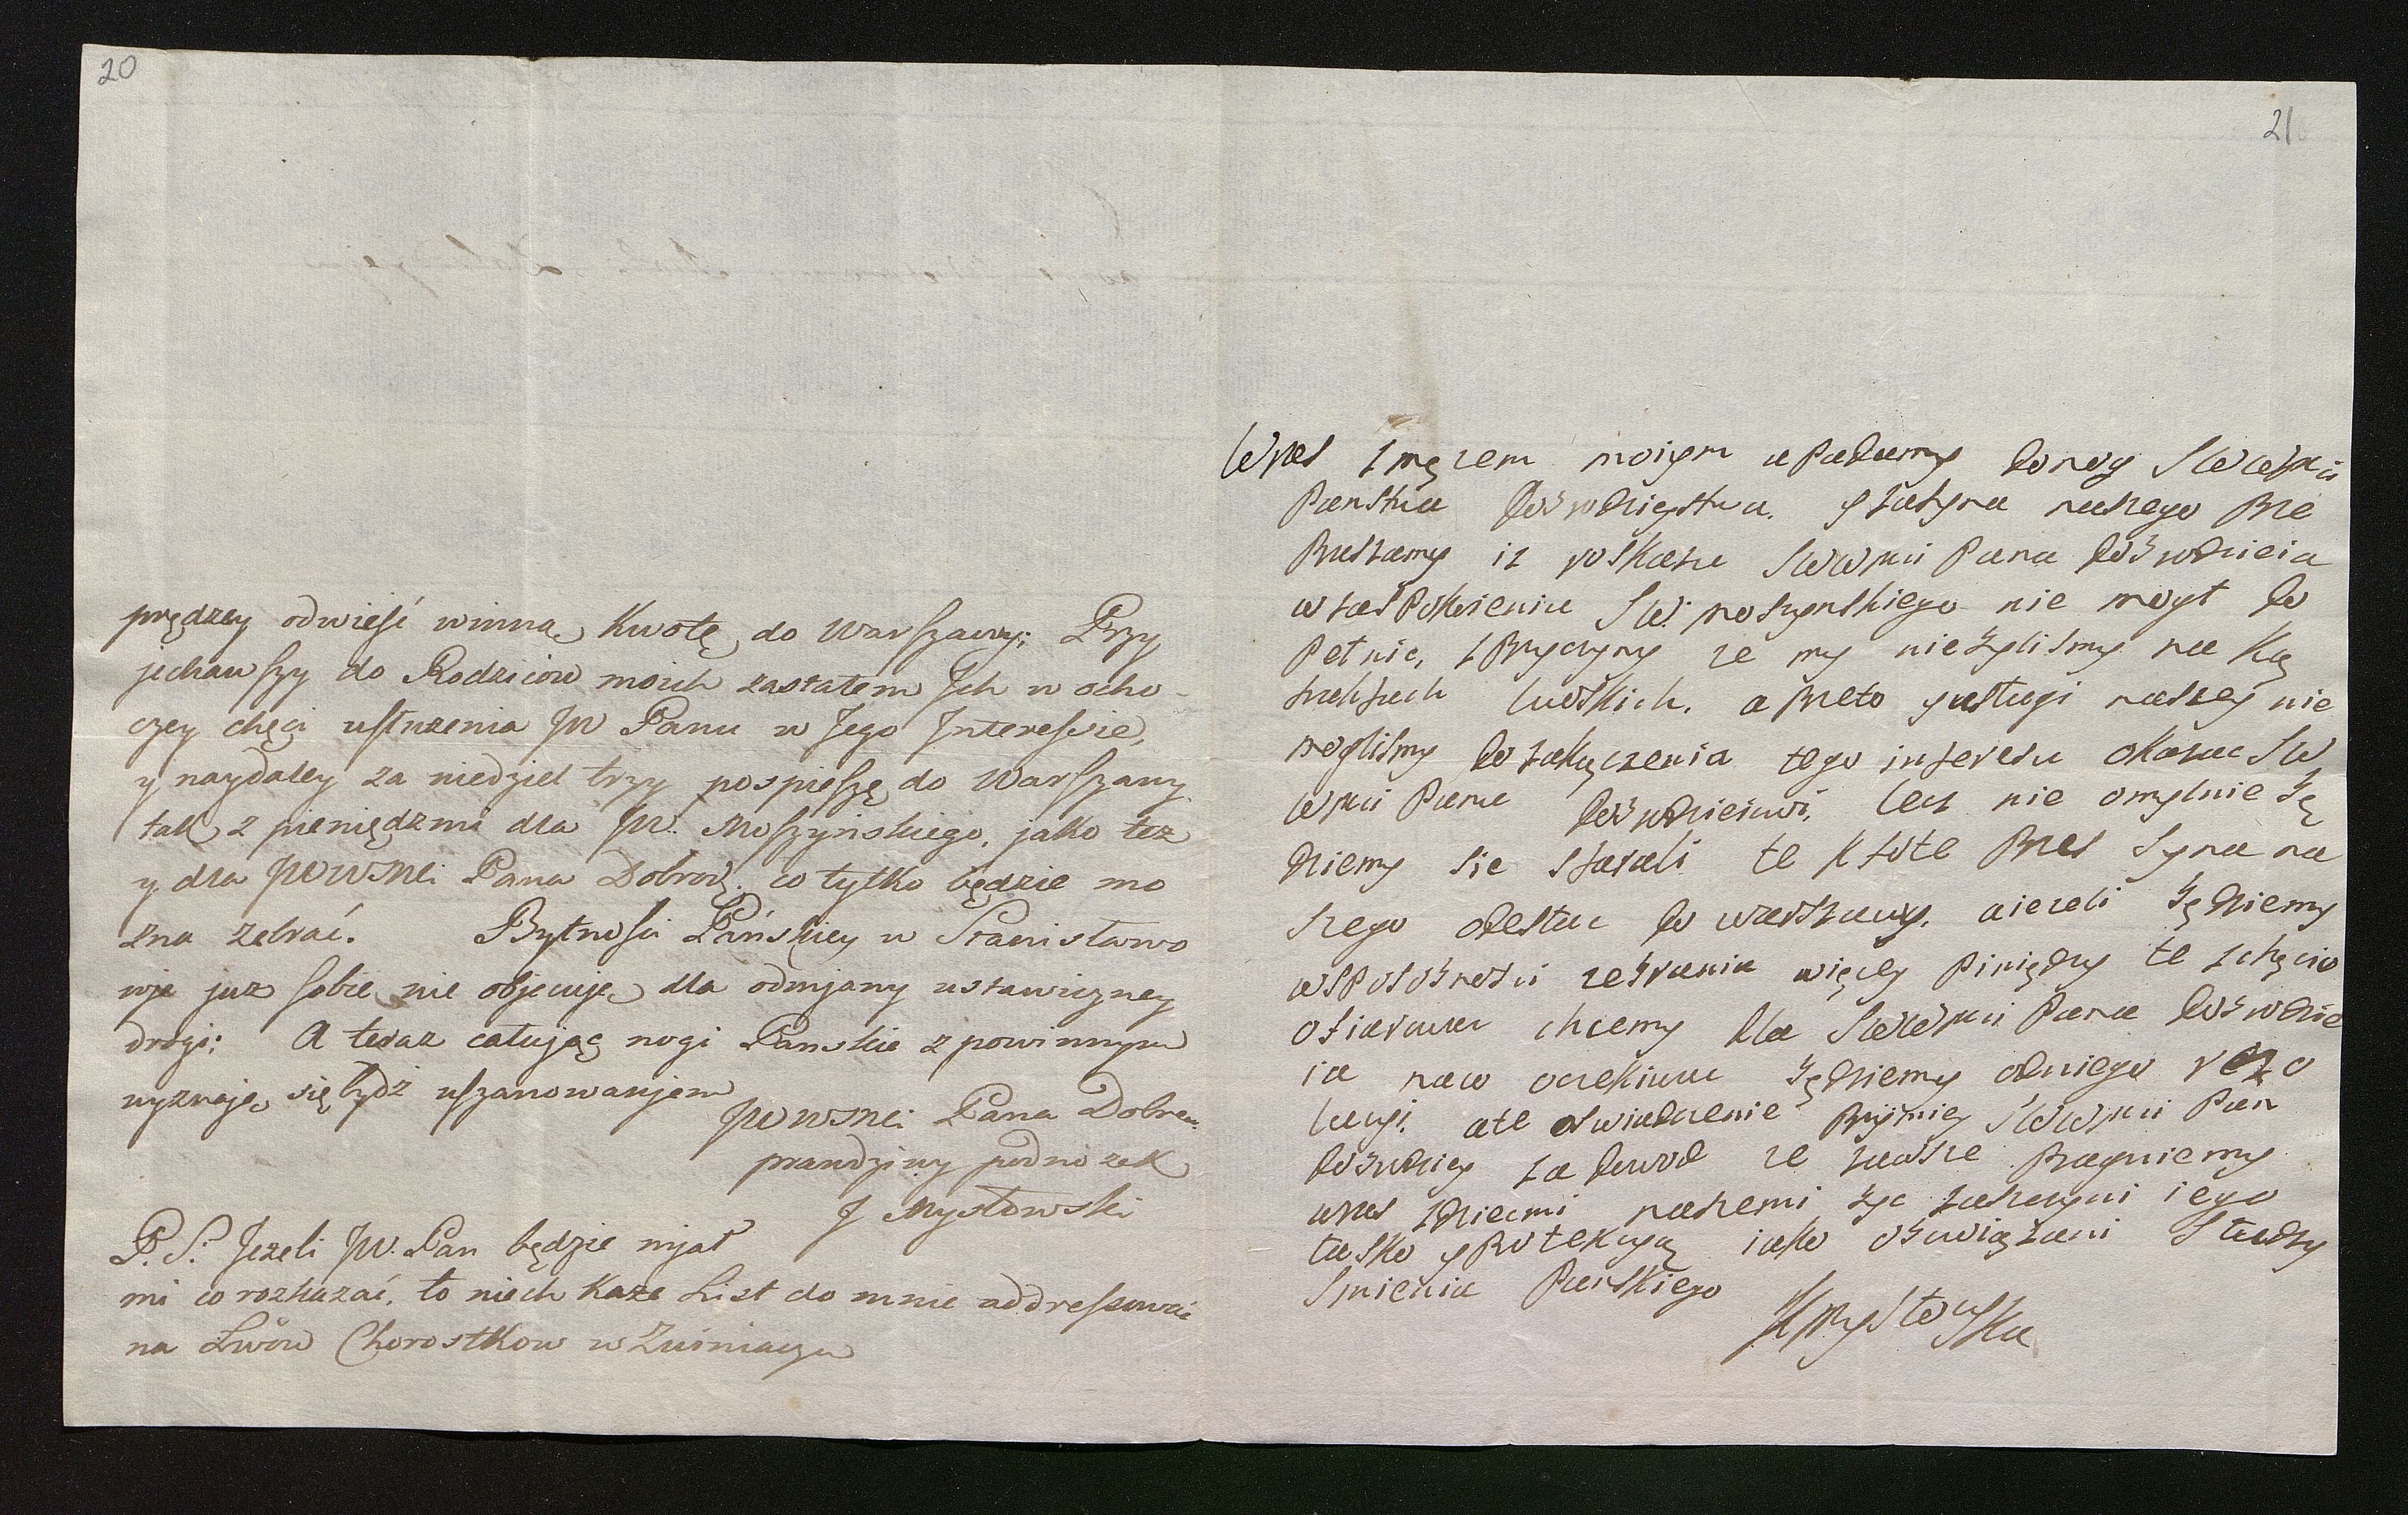 20
prędzey odwieść winną Kwotę do Warszawy; Przy
jechawszy do Rodziców moich zastałem Jch w ocho-
czey chęci usłużenia JW Panu w Jego Jnteressie,
y naydaley za niedziel trzy pospieszę do Warszawy
tak z pieniędzmi dla JW. Moszyńskiego, jako też
y dla JWWMci Pana Dobrodz. co tylko będzie mo
żna zebrać. Bytności Pańskiey w Stanisławo
wie już sobie nie objecuję dla odmjany ustawiczney
drogi; A teraz całując nogi Panskie z powinnym
wyznaję się bydź uszanowanjem
JWWMci Pana Dobro
prawdziwy podnożek
J Mysłowski
P.S. Jeżeli JW. Pan będzie mjał
mi co rozkazać, to niech każe List do mnie addressować
na Lwów Chorostkow w
21
Wraz z mężem moiym upadamy donog JWWMci
Panstwa Dobrodzieystwa. y zasyna naszego Prze
Praszamy iz roskazu JWWMci Pana Dobrodzieia
w zaspokoieniu JW. moszynskiego nie mogł do
Pełnic, z Przyczyny ze my niebylismy na Ką
traktach lwoskich. a Przeto y usługi naszey nie
moglismy do zakączenia tego interesu okazac JW
WMci Panu Dobrodzieiowi, lecz nie omylnie bę
dziemy sie starali te kwote Przez Syna na
szego odesłac do warszawy. aiezeli będziemy
wsposobnosci zebrania więcey Piniędzy te zchęcio
ofiarowac chcemy dla JWWMci Pana Dobrodzie
ia naco oczekiwac będziemy odniego rezo
lucyi. ate oswiadczenie Przyimiey JWWMci Pan
Dobrodziey za dowod ze zawsze Pragniemy
wraz zdziecmi naszemi byc zaszczyceni iego
łasko y Protekcyą iako obowiązani Słudzy
Jmienia Panskiego
Mysłowska